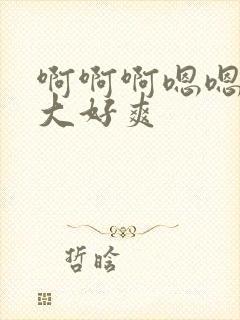 啊啊啊嗯嗯
大好爽
哲晗